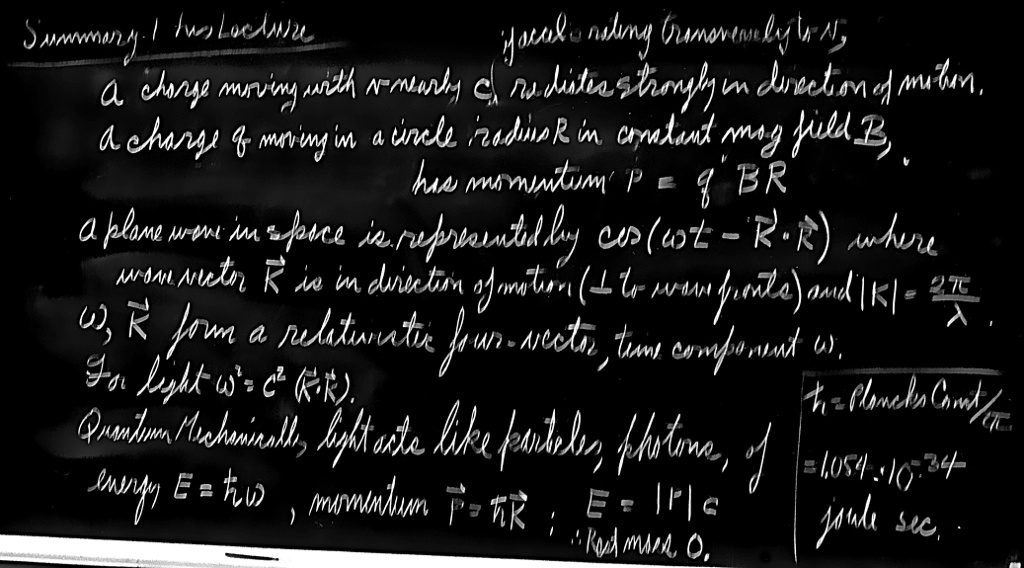 Summary, this Lecture
if accelerating transversely to v,
A charge moving with v nearly c, radiates strongly in direction of motion.
A charge q moving in a circle radius R in constant mag field B,
has momentum P = q BR
A plane wave in space is represented by cos(ωt - K⃗·R⃗) where
wave vector K⃗ is in direction of motion (⊥ to wave fronts) and |K| = 2π/λ.
ω, K⃗ form a relativistic four-vector, time component ω.
For light ω² = c² (K⃗·K⃗).
Quantum Mechanically, light acts like particles, photons, of
energy E = ħω, momentum P⃗ = ħK⃗ ; E = |P|c
∴ Rest mass 0.
ħ = Plancks Const/2π
= 1.054·10⁻³⁴
joule sec.